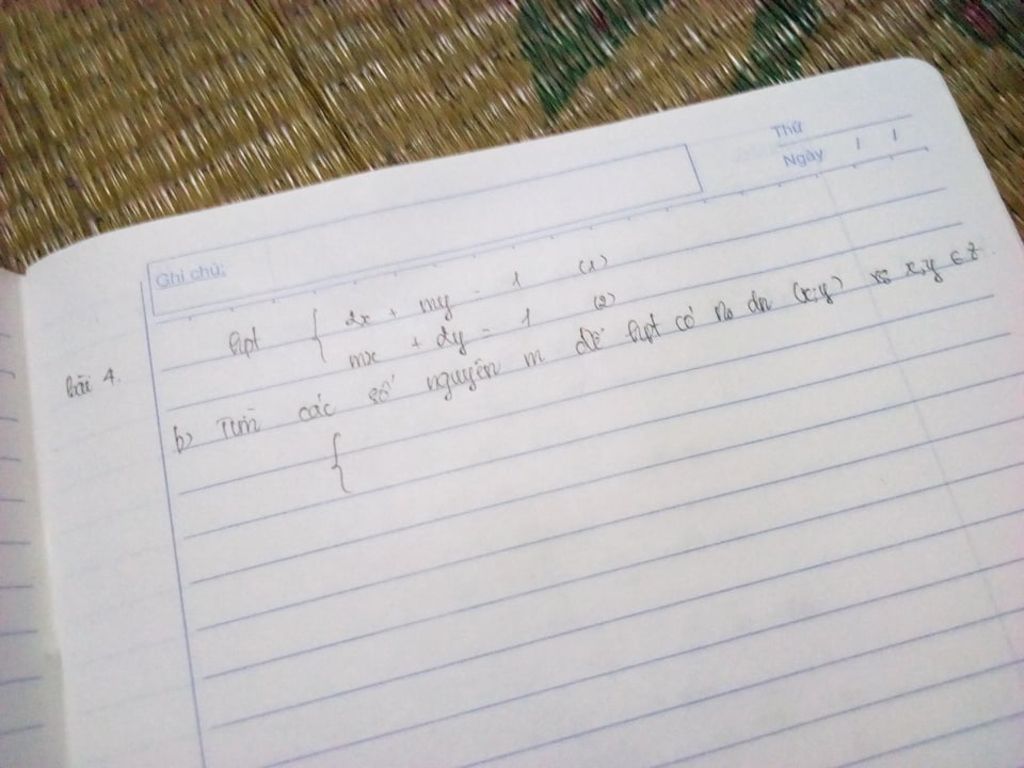 Thứ
Ngày / /
Ghi chú:
Bài 4. hpt { 2x + my = 1 (1)
mx + 2y = 1 (2)
b) Tìm các số nguyên m để hpt có no dn (x;y) vs x,y ∈ Z.
{